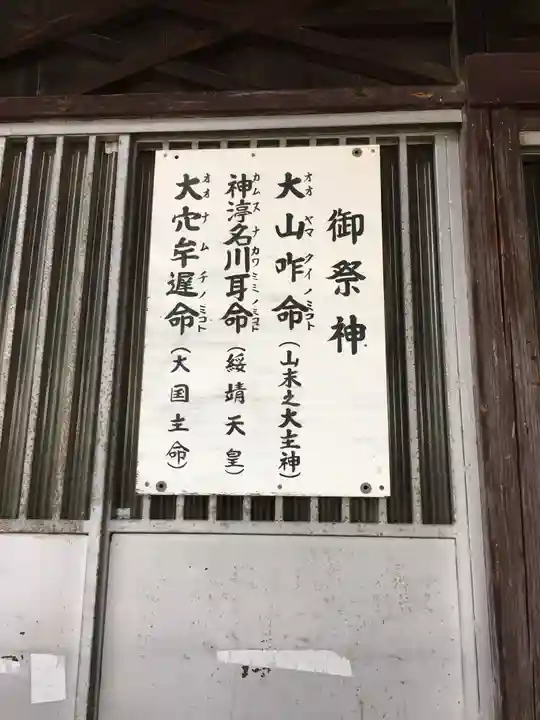 御祭神
大山咋命（山末之大主神）
オオ ヤマ クイノミコト
神渟名川耳命（綏靖天皇）
カムス ナ カワミミノミコト
大穴牟遅命（大国主命）
オオナムチノミコト